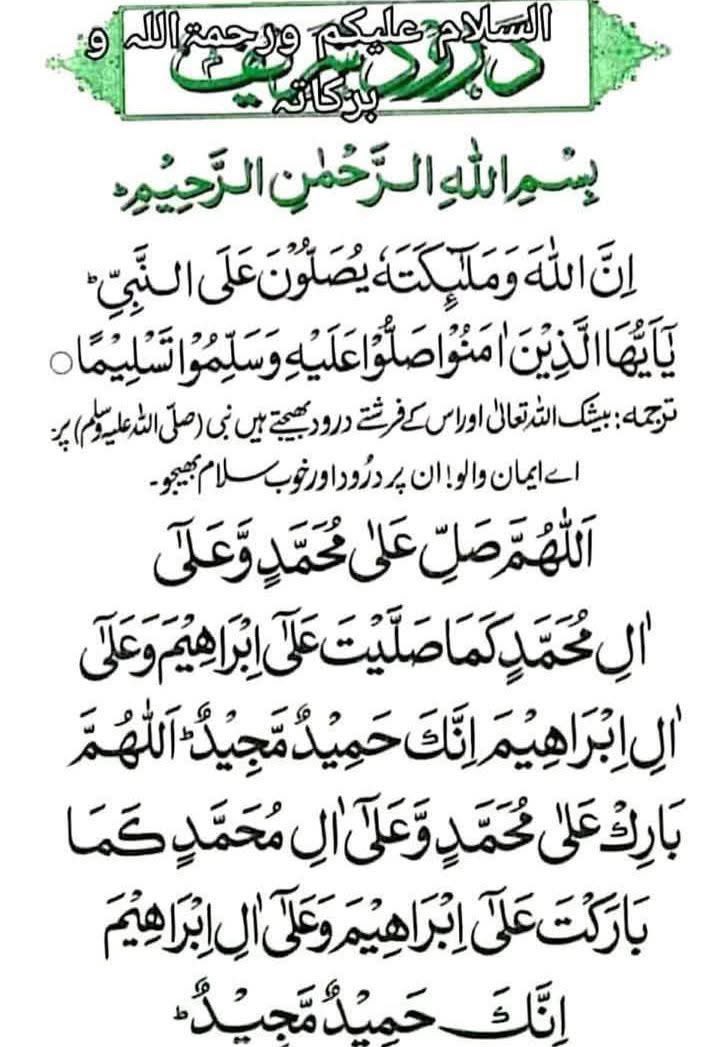 السلام علیکم ورحمۃاللہ و
برکاتہ
درود شریف
بِسْمِ اللّٰهِ الرَّحْمٰنِ الرَّحِیْمِ ؕ
اِنَّ اللّٰهَ وَمَلٰٓئِكَتَهٗ یُصَلُّوْنَ عَلَی النَّبِیِّ ؕ
یٰۤاَیُّهَا الَّذِیْنَ اٰمَنُوْا صَلُّوْا عَلَیْهِ وَسَلِّمُوْا تَسْلِیْمًا ○
ترجمہ: بیشک اللہ تعالیٰ اور اس کے فرشتے درود بھیجتے ہیں نبی (صلّی اللہ علیہ وسلم) پر
اے ایمان والو! ان پر درُود اور خوب سلام بھیجو۔
اَللّٰهُمَّ صَلِّ عَلٰی مُحَمَّدٍ وَّعَلٰۤی
اٰلِ مُحَمَّدٍ كَمَا صَلَّیْتَ عَلٰۤی اِبْرَاهِیْمَ وَعَلٰۤی
اٰلِ اِبْرَاهِیْمَ اِنَّكَ حَمِیْدٌ مَّجِیْدٌ ؕ اَللّٰهُمَّ
بَارِكْ عَلٰی مُحَمَّدٍ وَّعَلٰۤی اٰلِ مُحَمَّدٍ كَمَا
بَارَكْتَ عَلٰۤی اِبْرَاهِیْمَ وَعَلٰۤی اٰلِ اِبْرَاهِیْمَ
اِنَّكَ حَمِیْدٌ مَّجِیْدٌ ؕ